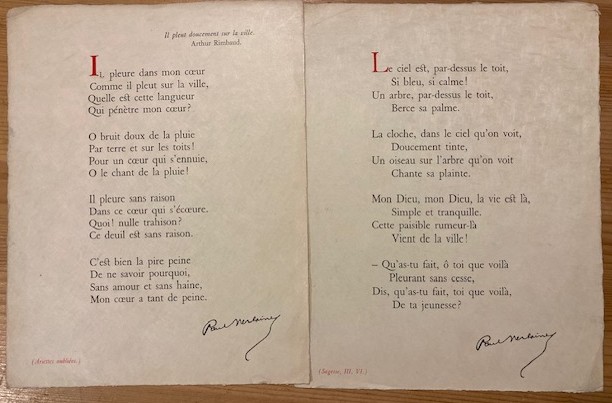 Il pleut doucement sur la ville.
Arthur Rimbaud.
IL pleure dans mon cœur
Comme il pleut sur la ville,
Quelle est cette langueur
Qui pénètre mon cœur?
O bruit doux de la pluie
Par terre et sur les toits!
Pour un cœur qui s'ennuie,
O le chant de la pluie!
Il pleure sans raison
Dans ce cœur qui s'écœure.
Quoi! nulle trahison?
Ce deuil est sans raison.
C'est bien la pire peine
De ne savoir pourquoi,
Sans amour et sans haine,
Mon cœur a tant de peine.
Paul Verlaine
(Ariettes oubliées.)
Le ciel est, par-dessus le toit,
Si bleu, si calme!
Un arbre, par-dessus le toit,
Berce sa palme.
La cloche, dans le ciel qu'on voit,
Doucement tinte,
Un oiseau sur l'arbre qu'on voit
Chante sa plainte.
Mon Dieu, mon Dieu, la vie est là,
Simple et tranquille.
Cette paisible rumeur-là
Vient de la ville!
– Qu'as-tu fait, ô toi que voilà
Pleurant sans cesse,
Dis, qu'as-tu fait, toi que voilà,
De ta jeunesse?
Paul Verlaine
(Sagesse, III, VI.)